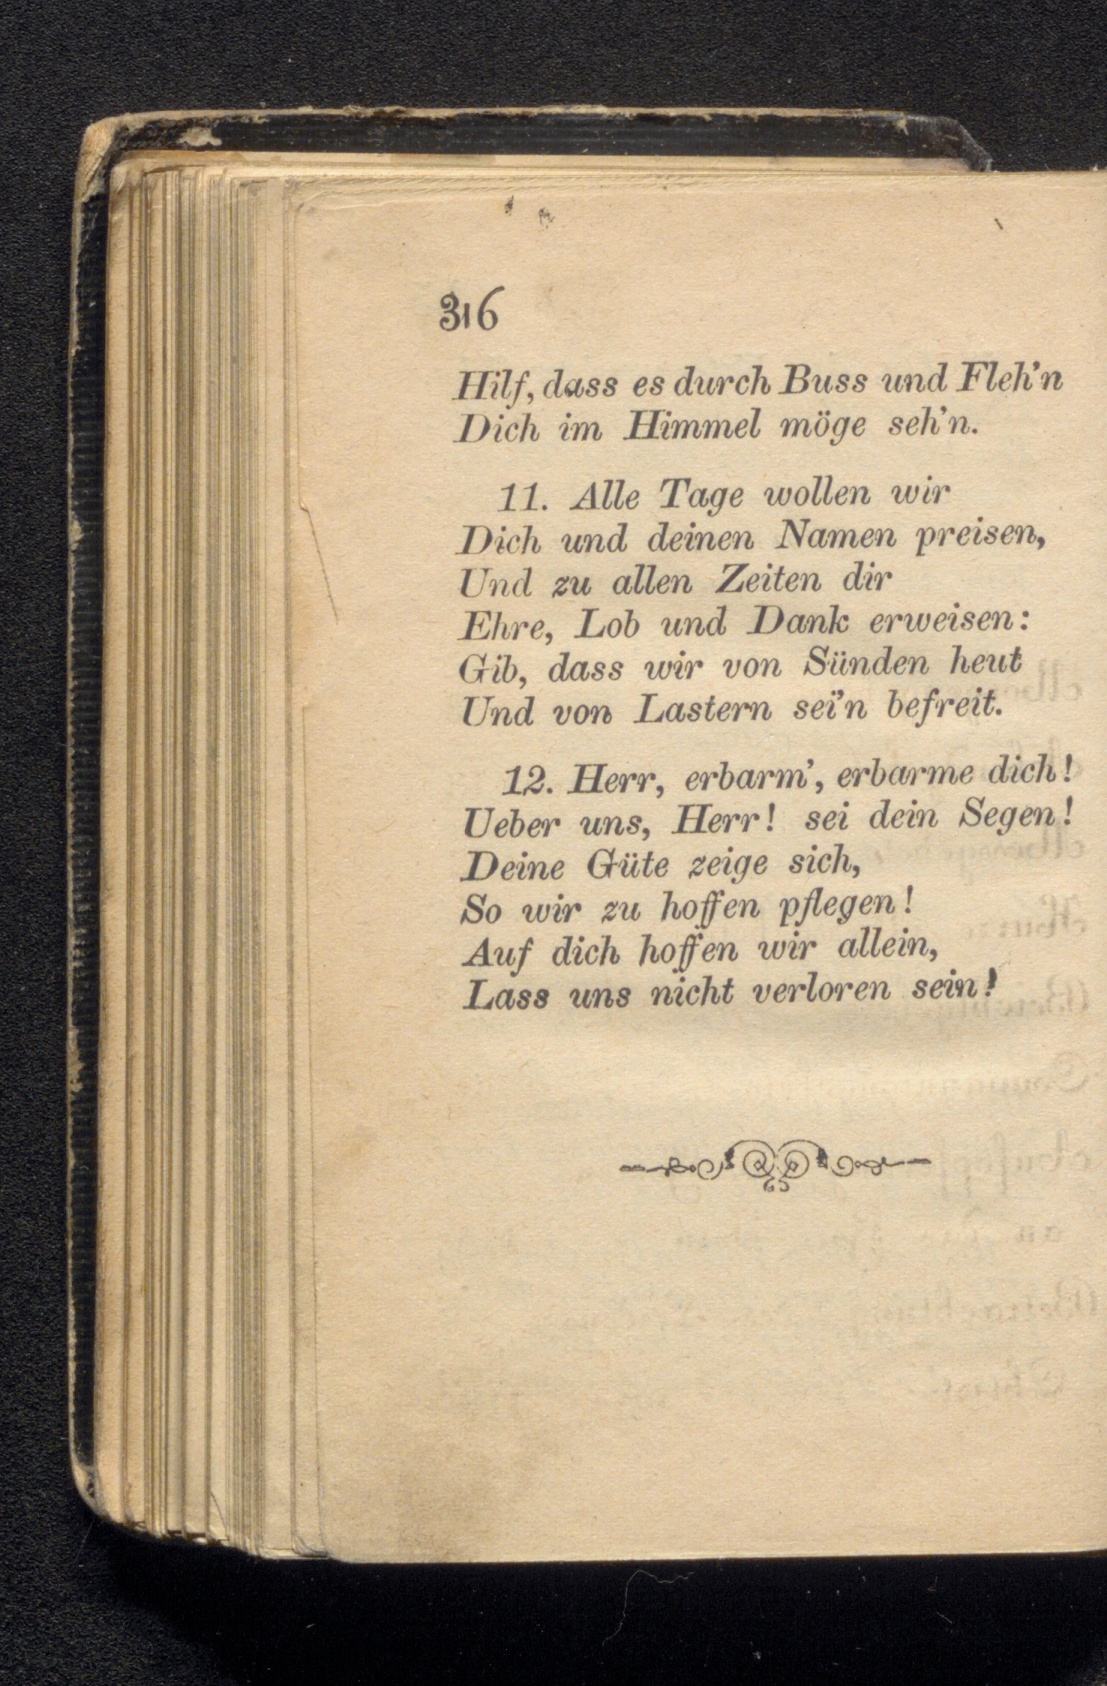 316
Hilf, dass es durch Buss und Fleh'n
Dich im Himmel möge seh'n.
11. Alle Tage wollen wir
Dich und deinen Namen preisen,
Und zu allen Zeiten dir
Ehre, Lob und Dank erweisen:
Gib, dass wir von Sünden heut
Und von Lastern sei'n befreit.
12. Herr, erbarm', erbarme dich!
Ueber uns, Herr! sei dein Segen!
Deine Güte zeige sich,
So wir zu hoffen pflegen!
Auf dich hoffen wir allein,
Lass uns nicht verloren sein!